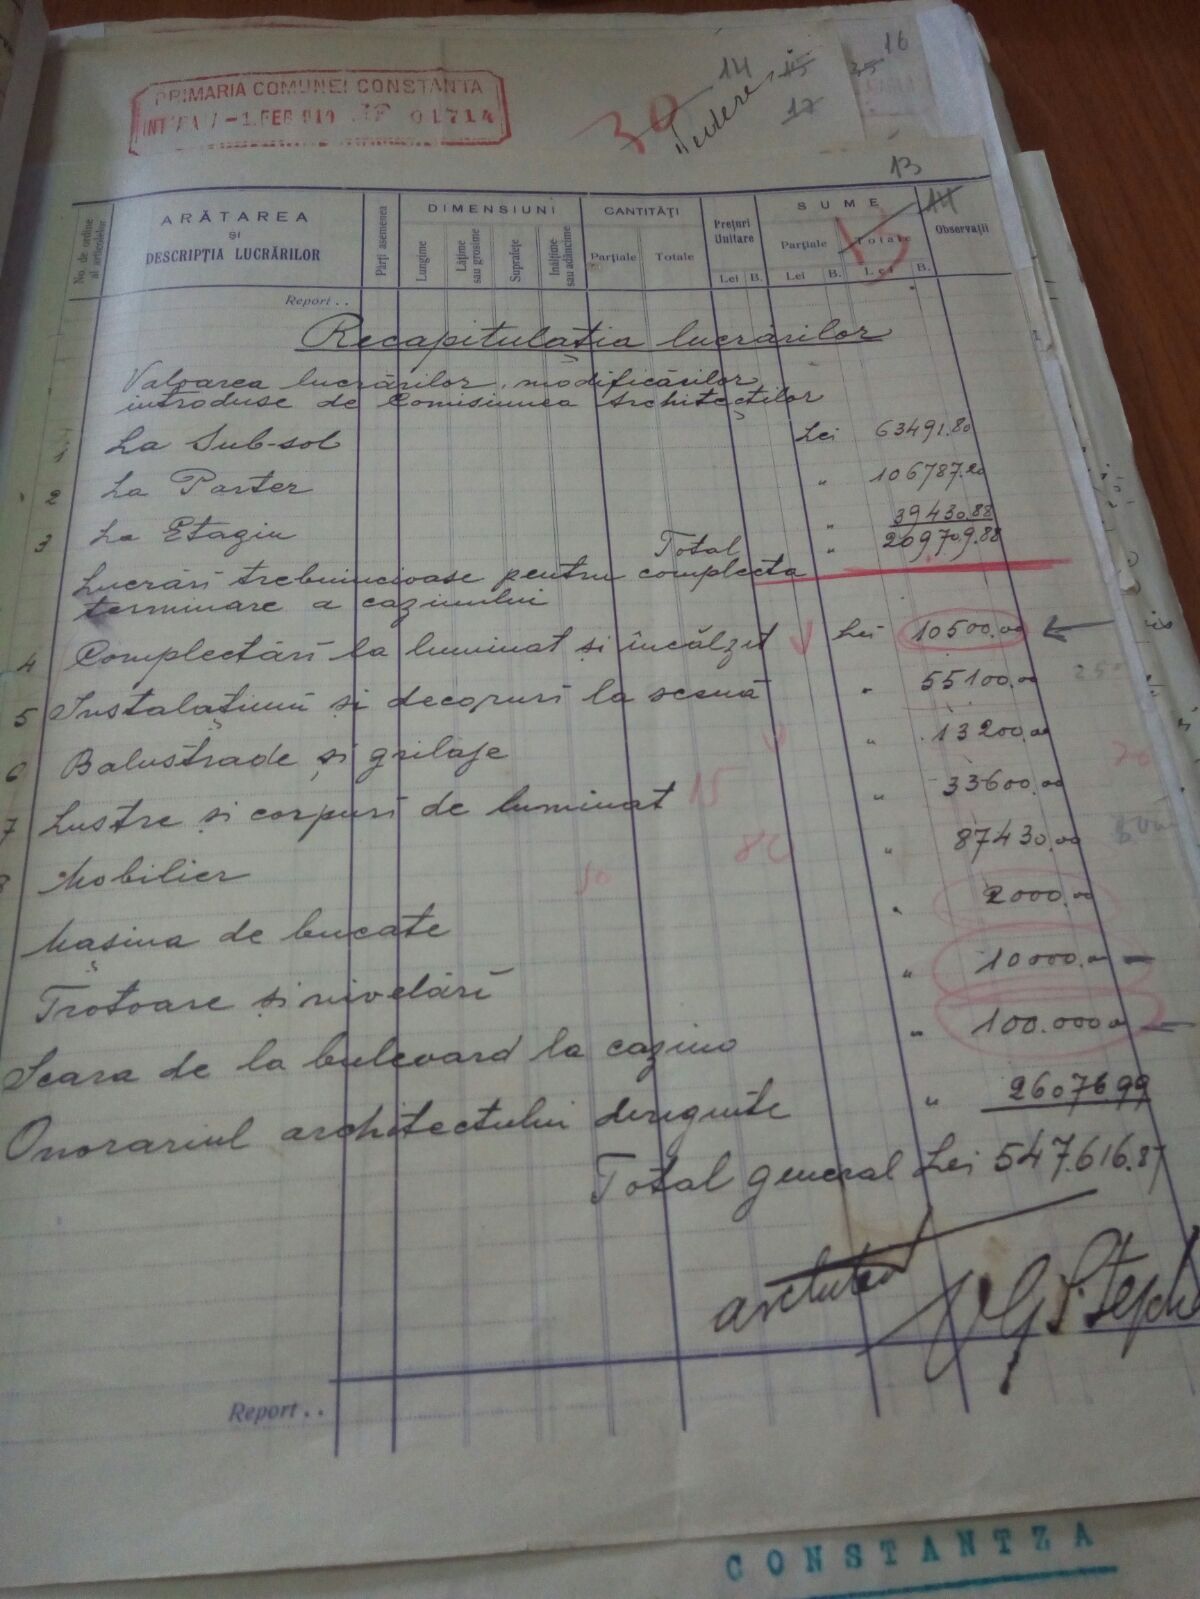 PRIMARIA COMUNEI CONSTANTA
1 FEB 910 01714
39
Vedere
14 15 16
17
13
14
No. de ordine al articolelor
ARĂTAREA
ȘI
DESCRIPȚIA LUCRĂRILOR
Părți asemenea
DIMENSIUNI
Lungime
Lățime sau grosime
Suprafețe
Inălțime sau adâncime
CANTITĂȚI
Parțiale
Totale
Prețuri Unitare
Lei B.
SUME
Parțiale
Totale
Lei B. Lei B.
Observații
13
Report . .
Recapitulația lucrărilor
Valoarea lucrărilor, modificărilor
introduse de Comisiunea Architecților
1 La Sub-sol Lei 63491.80
2 La Parter " 106787.20
3 La Etagiu " 39430.88
Total " 209709.88
Lucrări trebuincioase pentru complecta
terminare a cazinului
4 Complectări la luminat și încălzit Lei 10500.00
5 Instalațiuni și decoruri la scenă " 55100.00
6 Balustrade și grilaje " 13200.00
7 Lustre și corpuri de luminat 15 " 33600.00
8 Mobilier " 87430.00
Mașina de bucate " 2000.00
Trotoare și nivelări " 10000.00
Scara de la bulevard la cazino " 100.000.00
Onorariul architectului diriginte " 26076.99
Total general Lei 547.616.87
Report . .
CONSTANTZA